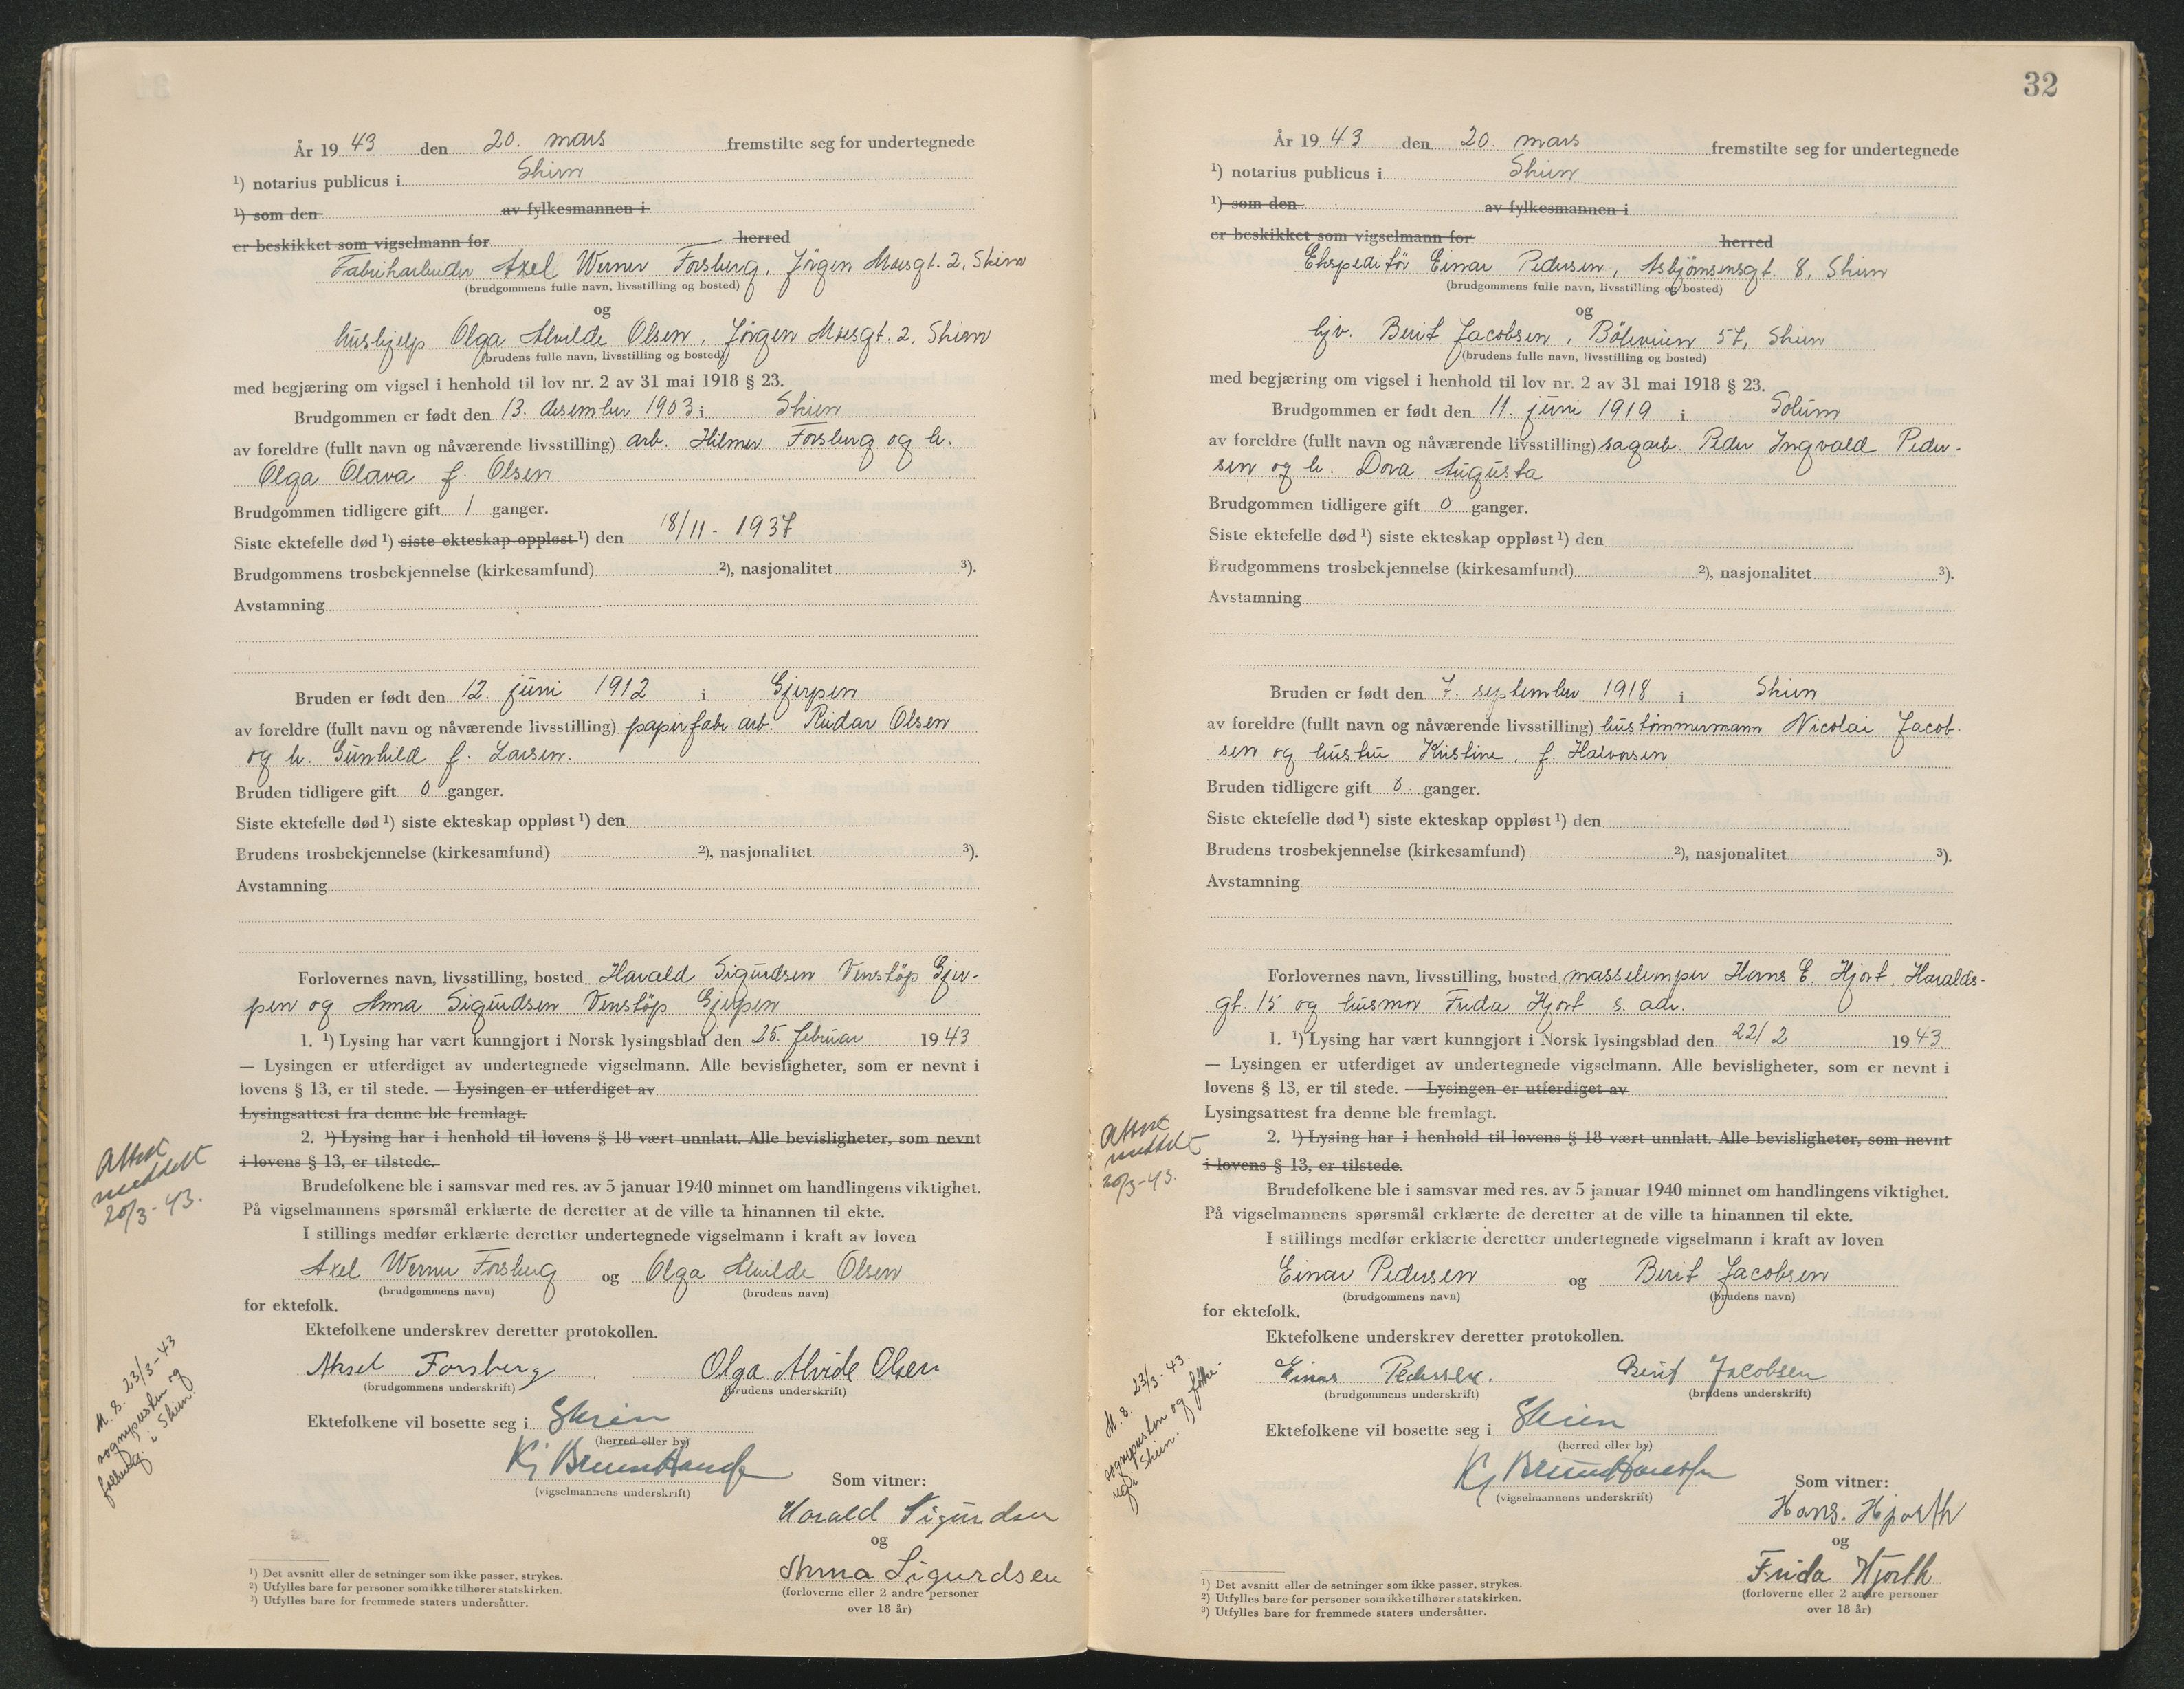 År 19 43 den 20. mars fremstilte seg for undertegnede
¹) notarius publicus i Skien
¹) som den av fylkesmannen i
er beskikket som vigselmann for herred
Fabrikarbeider Axel Werner Forsberg, Jörgen Moesgt. 2, Skien
(brudgommens fulle navn, livsstilling og bosted)
og
hushjelp Olga Alvilde Olsen, Jörgen Moesgt. 2, Skien
(brudens fulle navn, livsstilling og bosted)
med begjæring om vigsel i henhold til lov nr. 2 av 31 mai 1918 § 23.
Brudgommen er født den 13. desember 1903 i Skien
av foreldre (fullt navn og nåværende livsstilling) arb. Hilmer Forsberg og h.
Olga Olava f. Olsen
Brudgommen tidligere gift 1 ganger.
Siste ektefelle død ¹) siste ekteskap oppløst ¹) den 18/11 - 1937
Brudgommens trosbekjennelse (kirkesamfund) ²), nasjonalitet ³).
Avstamning
Bruden er født den 12. juni 1912 i Gjerpen
av foreldre (fullt navn og nåværende livsstilling) papirfabr. arb. Reidar Olsen
og h. Gunhild f. Larsen.
Bruden tidligere gift 0 ganger.
Siste ektefelle død ¹) siste ekteskap oppløst ¹) den
Brudens trosbekjennelse (kirkesamfund) ²), nasjonalitet ³).
Avstamning
Forlovernes navn, livsstilling, bosted Harald Sigurdsen Venstöp Gjer-
pen og Anna Sigurdsen Venstöp Gjerpen
1. ¹) Lysing har vært kunngjort i Norsk lysingsblad den 25. februar 19 43
— Lysingen er utferdiget av undertegnede vigselmann. Alle bevisligheter, som er nevnt i
lovens § 13, er til stede. — Lysingen er utferdiget av
Lysingsattest fra denne ble fremlagt.
2. ¹) Lysing har i henhold til lovens § 18 vært unnlatt. Alle bevisligheter, som nevnt
i lovens § 13, er tilstede.
Attest
meddelt
20/3-43.
Brudefolkene ble i samsvar med res. av 5 januar 1940 minnet om handlingens viktighet.
På vigselmannens spørsmål erklærte de deretter at de ville ta hinannen til ekte.
I stillings medfør erklærte deretter undertegnede vigselmann i kraft av loven
Axel Werner Forsberg og Olga Alvilde Olsen
(brudgommens navn) (brudens navn)
for ektefolk.
Ektefolkene underskrev deretter protokollen.
Aksel Forsberg Olga Alvide Olsen
(brudgommens underskrift) (brudens underskrift)
M. s. 23/3-43
sognepresten og
folkereg. i Skien.
Ektefolkene vil bosette seg i Skien
(herred eller by)
(vigselmannens underskrift)
Som vitner:
Harald Sigurdsen
og
Anna Sigurdsen
(forloverne eller 2 andre personer
over 18 år)
¹) Det avsnitt eller de setninger som ikke passer, strykes.
²) Utfylles bare for personer som ikke tilhører statskirken.
³) Utfylles bare for fremmede staters undersåtter.
32
År 19 43 den 20. mars fremstilte seg for undertegnede
¹) notarius publicus i Skien
¹) som den av fylkesmannen i
er beskikket som vigselmann for herred
Ekspeditör Einar Pedersen, Asbjörnsensgt. 8, Skien
(brudgommens fulle navn, livsstilling og bosted)
og
hjv. Berit Jacobsen, Böleveien 57, Skien
(brudens fulle navn, livsstilling og bosted)
med begjæring om vigsel i henhold til lov nr. 2 av 31 mai 1918 § 23.
Brudgommen er født den 11. juni 1919 i Solum
av foreldre (fullt navn og nåværende livsstilling) sagarb. Peder Ingvald Peder-
sen og h. Dora Augusta
Brudgommen tidligere gift 0 ganger.
Siste ektefelle død ¹) siste ekteskap oppløst ¹) den
Brudgommens trosbekjennelse (kirkesamfund) ²), nasjonalitet ³).
Avstamning
Bruden er født den 7. september 1918 i Skien
av foreldre (fullt navn og nåværende livsstilling) hustömmermann Nicolai Jacob-
sen og hustru Kristine, f. Halvorsen
Bruden tidligere gift 0 ganger.
Siste ektefelle død ¹) siste ekteskap oppløst ¹) den
Brudens trosbekjennelse (kirkesamfund) ²), nasjonalitet ³).
Avstamning
Forlovernes navn, livsstilling, bosted masselemper Hans E. Hjort, Haralds-
gt. 15 og husmor Frida Hjort s. adr.
1. ¹) Lysing har vært kunngjort i Norsk lysingsblad den 22/2 19 43
— Lysingen er utferdiget av undertegnede vigselmann. Alle bevisligheter, som er nevnt i
lovens § 13, er til stede. — Lysingen er utferdiget av
Lysingsattest fra denne ble fremlagt.
2. ¹) Lysing har i henhold til lovens § 18 vært unnlatt. Alle bevisligheter, som nevnt
i lovens § 13, er tilstede.
Attest
meddelt
20/3-43.
Brudefolkene ble i samsvar med res. av 5 januar 1940 minnet om handlingens viktighet.
På vigselmannens spørsmål erklærte de deretter at de ville ta hinannen til ekte.
I stillings medfør erklærte deretter undertegnede vigselmann i kraft av loven
Einar Pedersen og Berit Jacobsen
(brudgommens navn) (brudens navn)
for ektefolk.
Ektefolkene underskrev deretter protokollen.
Einar Pedersen. Berit Jacobsen
(brudgommens underskrift) (brudens underskrift)
M. s. 23/3-43.
sognepresten og folke-
reg. i Skien.
Ektefolkene vil bosette seg i Skien
(herred eller by)
(vigselmannens underskrift)
Som vitner:
Hans. Hjorth
og
Frida Hjorth
(forloverne eller 2 andre personer
over 18 år)
¹) Det avsnitt eller de setninger som ikke passer, strykes.
²) Utfylles bare for personer som ikke tilhører statskirken.
³) Utfylles bare for fremmede staters undersåtter.